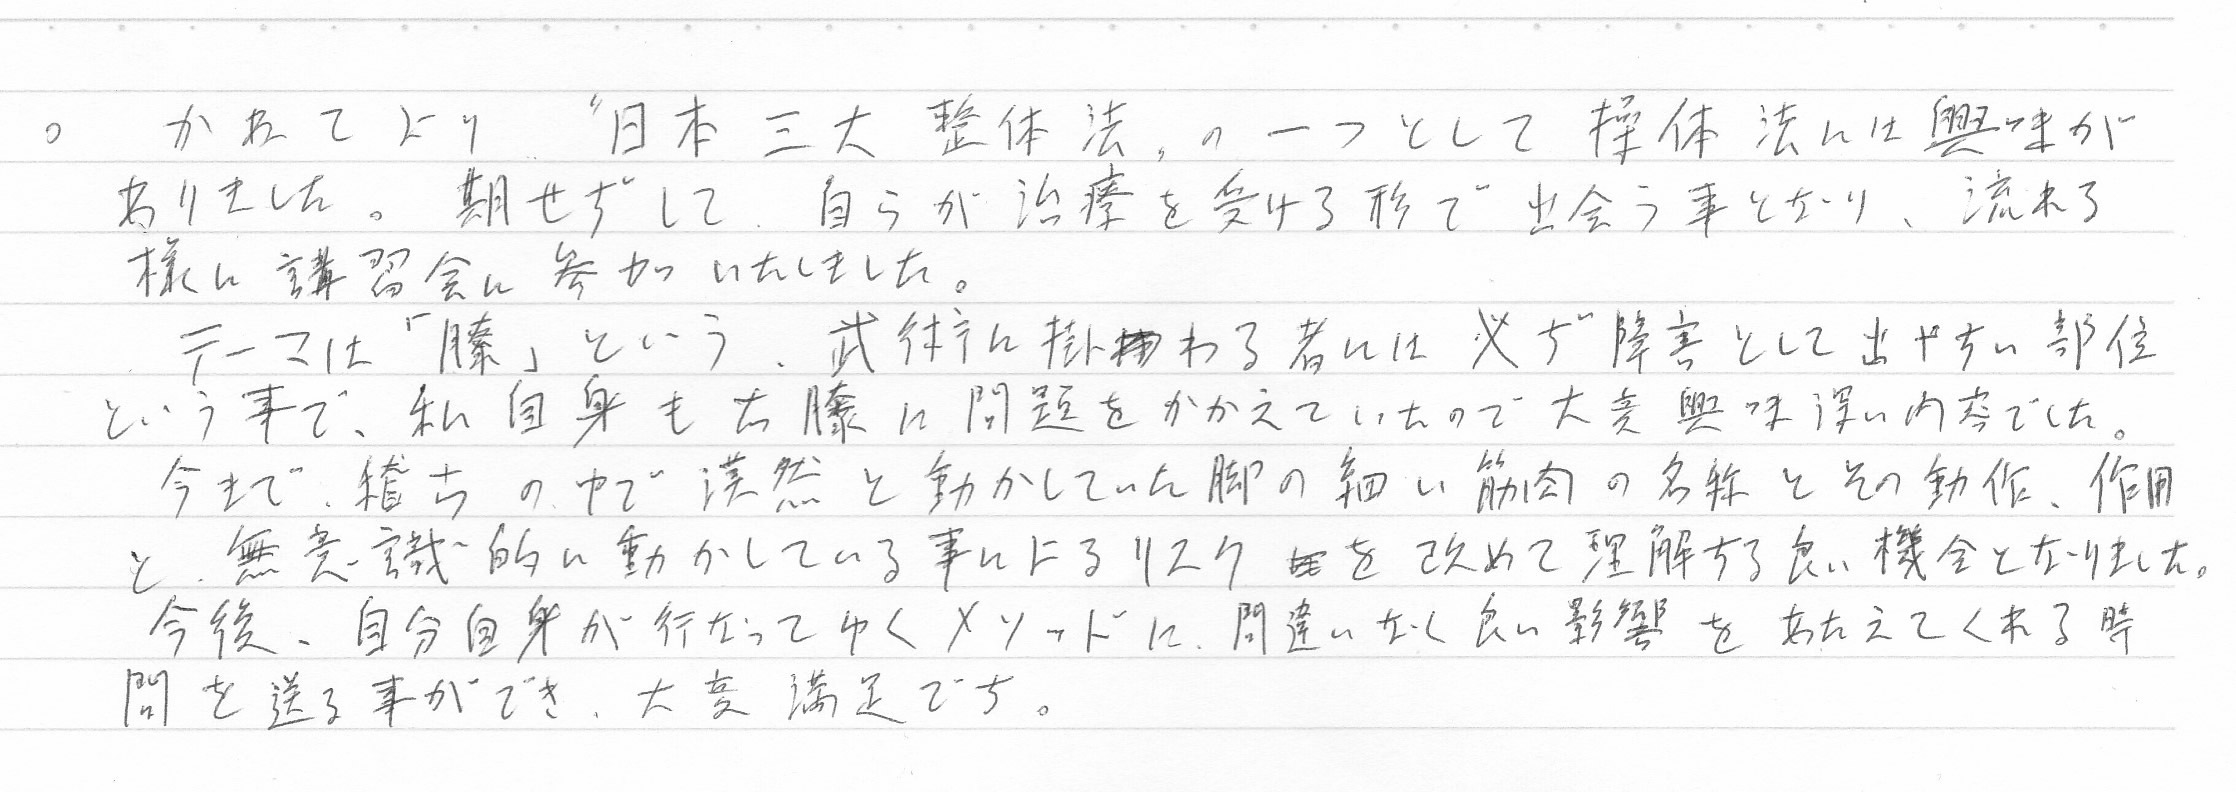 。 かねてより〝日本三大整体法〟の一つとして操体法には興味が
ありました。期せずして、自らが治療を受ける形で出会う事となり、流れる
様に講習会に参加いたしました。
テーマは「膝」という、武術に掛わる者には必ず障害として出やすい部位
という事で、私自身も右膝に問題をかかえていたので大変興味深い内容でした。
今まで、稽古の中で漠然と動かしていた脚の細い筋肉の名称とその動作、作用
と、無意識的に動かしている事によるリスクを改めて理解する良い機会となりました。
今後、自分自身が行なってゆくメソッドに、間違いなく良い影響をあたえてくれる時
間を送る事ができ、大変満足です。